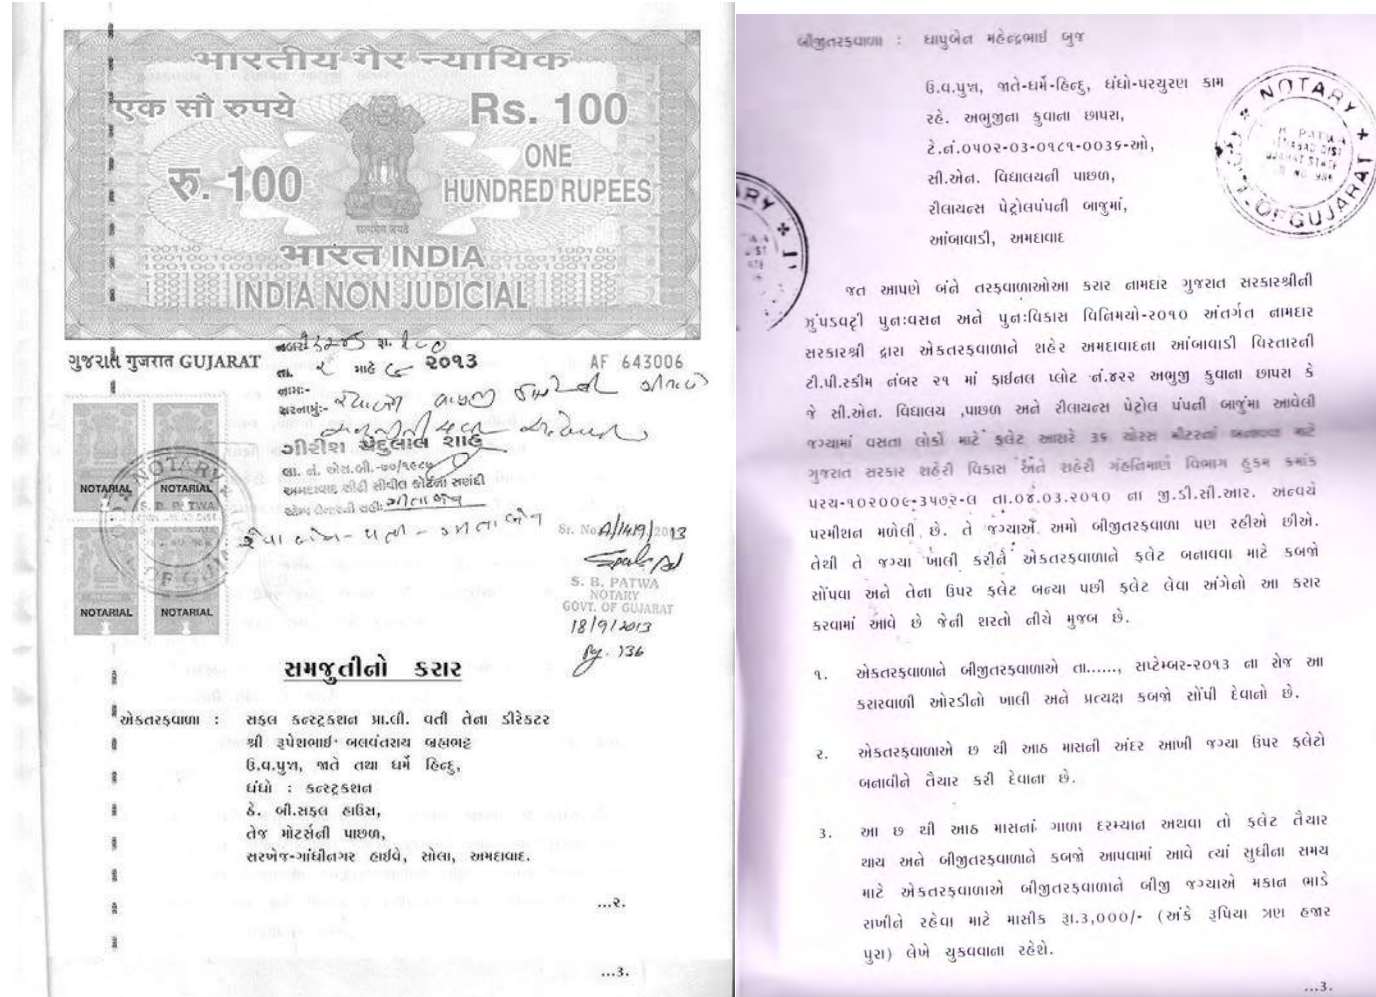 भारतीय गैर न्यायिक
एक सौ रुपये
Rs. 100
रु. 100
ONE
HUNDRED RUPEES
सत्यमेव जयते
भारत INDIA
INDIA NON JUDICIAL
ગુજરાત गुजरात GUJARAT
૨૦૧૩
AF 643006
તા. ૨ માહે ૯
નામઃ-
સરનામુંઃ-
ગીરીશ ચંદુલાલ શાહ
લા. નં. એસ.બી.-૭૦/૧૯૮૭
અમદાવાદ સીટી સીવીલ કોર્ટની સણંદી
NOTARIAL NOTARIAL
NOTARIAL NOTARIAL
Sr. No. A/1419/2013
S. B. PATWA
NOTARY
GOVT. OF GUJARAT
18/9/2013
Pg. 136
સમજુતીનો કરાર
એકતરફવાળા : સફલ કન્સ્ટ્રકશન પ્રા.લી. વતી તેના ડીરેકટર
શ્રી રૂપેશભાઈ બલવંતરાય બ્રહ્મભટ્ટ
ઉ.વ.પુખ્ત, જાતે તથા ધર્મે હિન્દુ,
ધંધો : કન્સ્ટ્રકશન
ઠે. બી.સફલ હાઉસ,
તેજ મોટર્સની પાછળ,
સરખેજ-ગાંધીનગર હાઈવે, સોલા, અમદાવાદ.
...૨.
...૩.
બીજીતરફવાળા : ધાપુબેન મહેન્દ્રભાઈ બુજ
ઉ.વ.પુખ્ત, જાતે-ધર્મે-હિન્દુ, ધંધો-પરચુરણ કામ
રહે. અભુજીના કુવાના છાપરા,
ટે.નં.૦૫૦૨-૦૩-૦૧૮૧-૦૦૩૬-ઓ,
સી.એન. વિદ્યાલયની પાછળ,
રીલાયન્સ પેટ્રોલપંપની બાજુમાં,
આંબાવાડી, અમદાવાદ
NOTARY
GOVT. OF GUJARAT
જત આપણે બંને તરફવાળાઓઆ કરાર નામદાર ગુજરાત સરકારશ્રીની
ઝુંપડવટ્ટી પુનઃવસન અને પુનઃવિકાસ વિનિમયો-૨૦૧૦ અંતર્ગત નામદાર
સરકારશ્રી દ્વારા એકતરફવાળાને શહેર અમદાવાદના આંબાવાડી વિસ્તારની
ટી.પી.સ્કીમ નંબર ૨૧ માં ફાઈનલ પ્લોટ નં.૪૨૨ અભુજી કુવાના છાપરા કે
જે સી.એન. વિદ્યાલય ,પાછળ અને રીલાયન્સ પેટ્રોલ પંપની બાજુંમા આવેલી
જગ્યામાં વસતા લોકો માટે ફલેટ આશરે ૩૬ ચોરસ મીટરનાં બનાવવા માટે
ગુજરાત સરકાર શહેરી વિકાસ અને શહેરી ગૃહનિર્માણ વિભાગ હુકમ ક્રમાંક
પરચ-૧૦૨૦૦૯-૩૫૭૨-લ તા.૦૪.૦૩.૨૦૧૦ ના જી.ડી.સી.આર. અન્વયે
પરમીશન મળેલી છે. તે જગ્યાએ અમો બીજીતરફવાળા પણ રહીએ છીએ.
તેથી તે જગ્યા ખાલી કરીને એકતરફવાળાને ફલેટ બનાવવા માટે કબજો
સોંપવા અને તેના ઉપર ફલેટ બન્યા પછી ફલેટ લેવા અંગેનો આ કરાર
કરવામાં આવે છે જેની શરતો નીચે મુજબ છે.
૧. એકતરફવાળાને બીજીતરફવાળાએ તા......, સપ્ટેમ્બર-૨૦૧૩ ના રોજ આ
કરારવાળી ઓરડીનો ખાલી અને પ્રત્યક્ષ કબજો સોંપી દેવાનો છે.
૨. એકતરફવાળાએ છ થી આઠ માસની અંદર આખી જગ્યા ઉપર ફલેટો
બનાવીને તૈયાર કરી દેવાના છે.
૩. આ છ થી આઠ માસનાં ગાળા દરમ્યાન અથવા તો ફલેટ તૈયાર
થાય અને બીજીતરફવાળાને કબજો આપવામાં આવે ત્યાં સુધીના સમય
માટે એકતરફવાળાએ બીજીતરફવાળાને બીજી જગ્યાએ મકાન ભાડે
રાખીને રહેવા માટે માસીક રૂા.૩,૦૦૦/- (અંકે રૂપિયા ત્રણ હજાર
પુરા) લેખે ચુકવવાના રહેશે.
...૩.